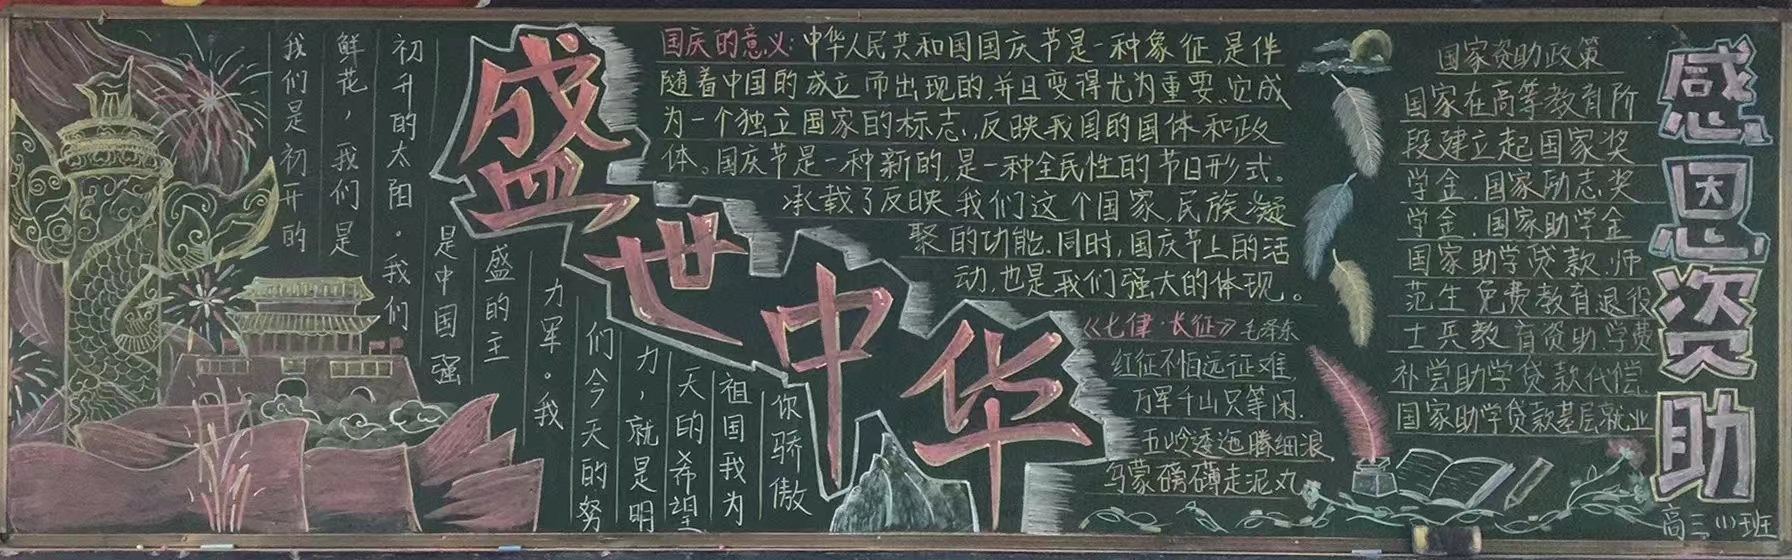 我们是初开的
鲜花，我们是
初升的太阳。我们
是中国强
盛的主
力军。我
们今天的努
力，就是明
天的希望
祖国我为
你骄傲
盛世中华
国庆的意义:中华人民共和国国庆节是一种象征,是伴
随着中国的成立而出现的,并且变得尤为重要。它成
为一个独立国家的标志,反映我国的国体和政
体。国庆节是一种新的,是一种全民性的节日形式。
承载了反映我们这个国家,民族凝
聚的功能.同时,国庆节上的活
动,也是我们强大的体现。
《七律·长征》毛泽东
红征不怕远征难,
万军千山只等闲.
五岭逶迤腾细浪,
乌蒙磅礴走泥丸
国家资助政策
国家在高等教育阶
段建立起国家奖
学金.国家励志奖
学金.国家助学金
国家助学贷款.师
范生免费教育退役
士兵教育资助.学费
补尝助学贷款代偿
国家助学贷款基层就业
感恩资助
高三(1)班